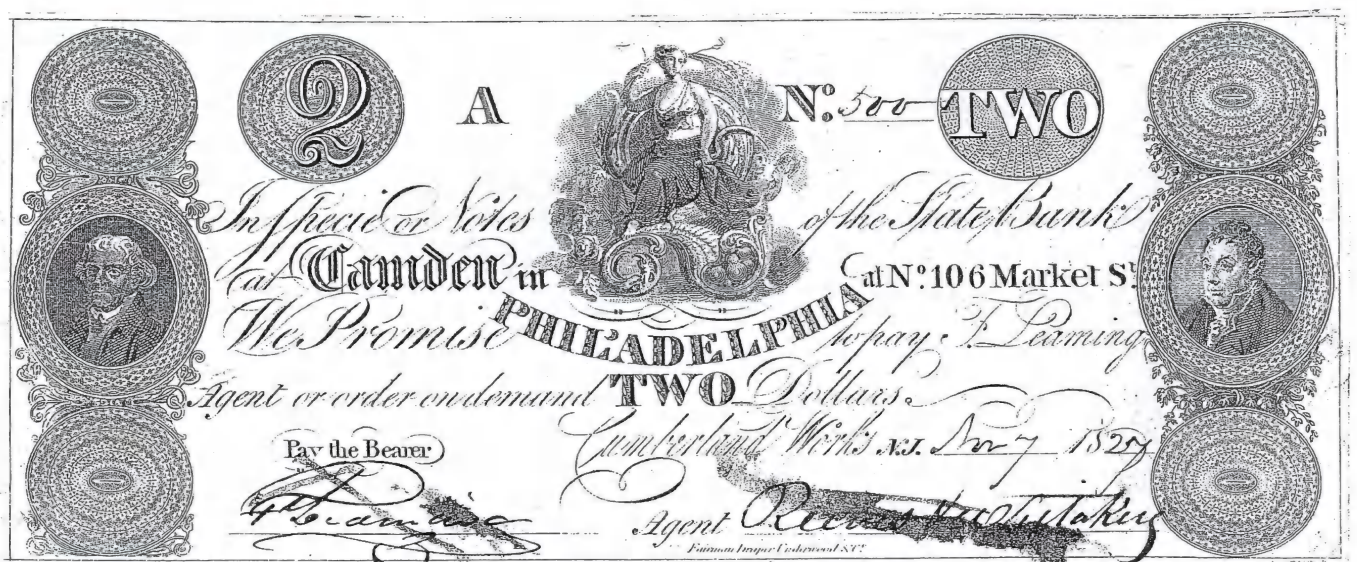 2 A No. 500 TWO
In Specie or Notes of the State Bank
at Camden in PHILADELPHIA at No. 106 Market St.
We Promise to pay F. Leaming
Agent or order on demand TWO Dollars.
Cumberland Works N.J. Nov 7 1827
Pay the Bearer
Agent Reeves Whitaker
Fairman Draper Underwood & Co.